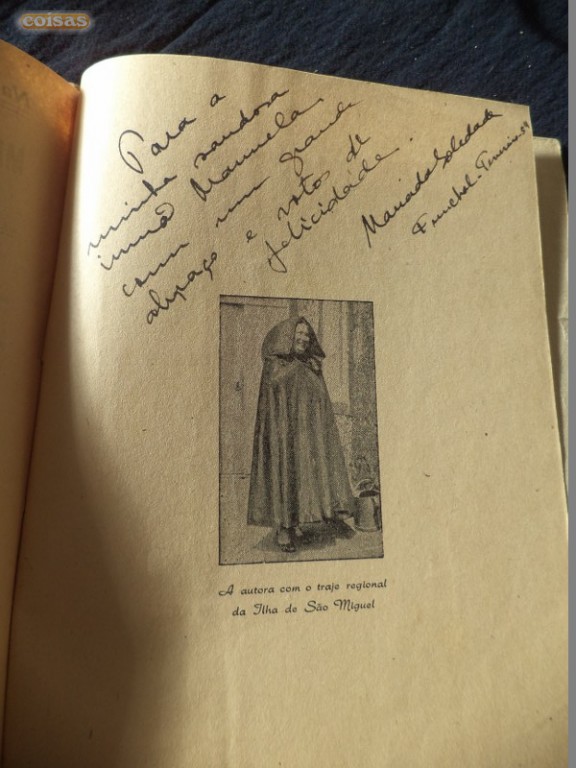 coisas
Para a
minha saudosa
irmã Manuela,
com um grande
abraço e votos de
felicidade.
Maria da Soledade
Funchal
A autora com o traje regional
da Ilha de São Miguel